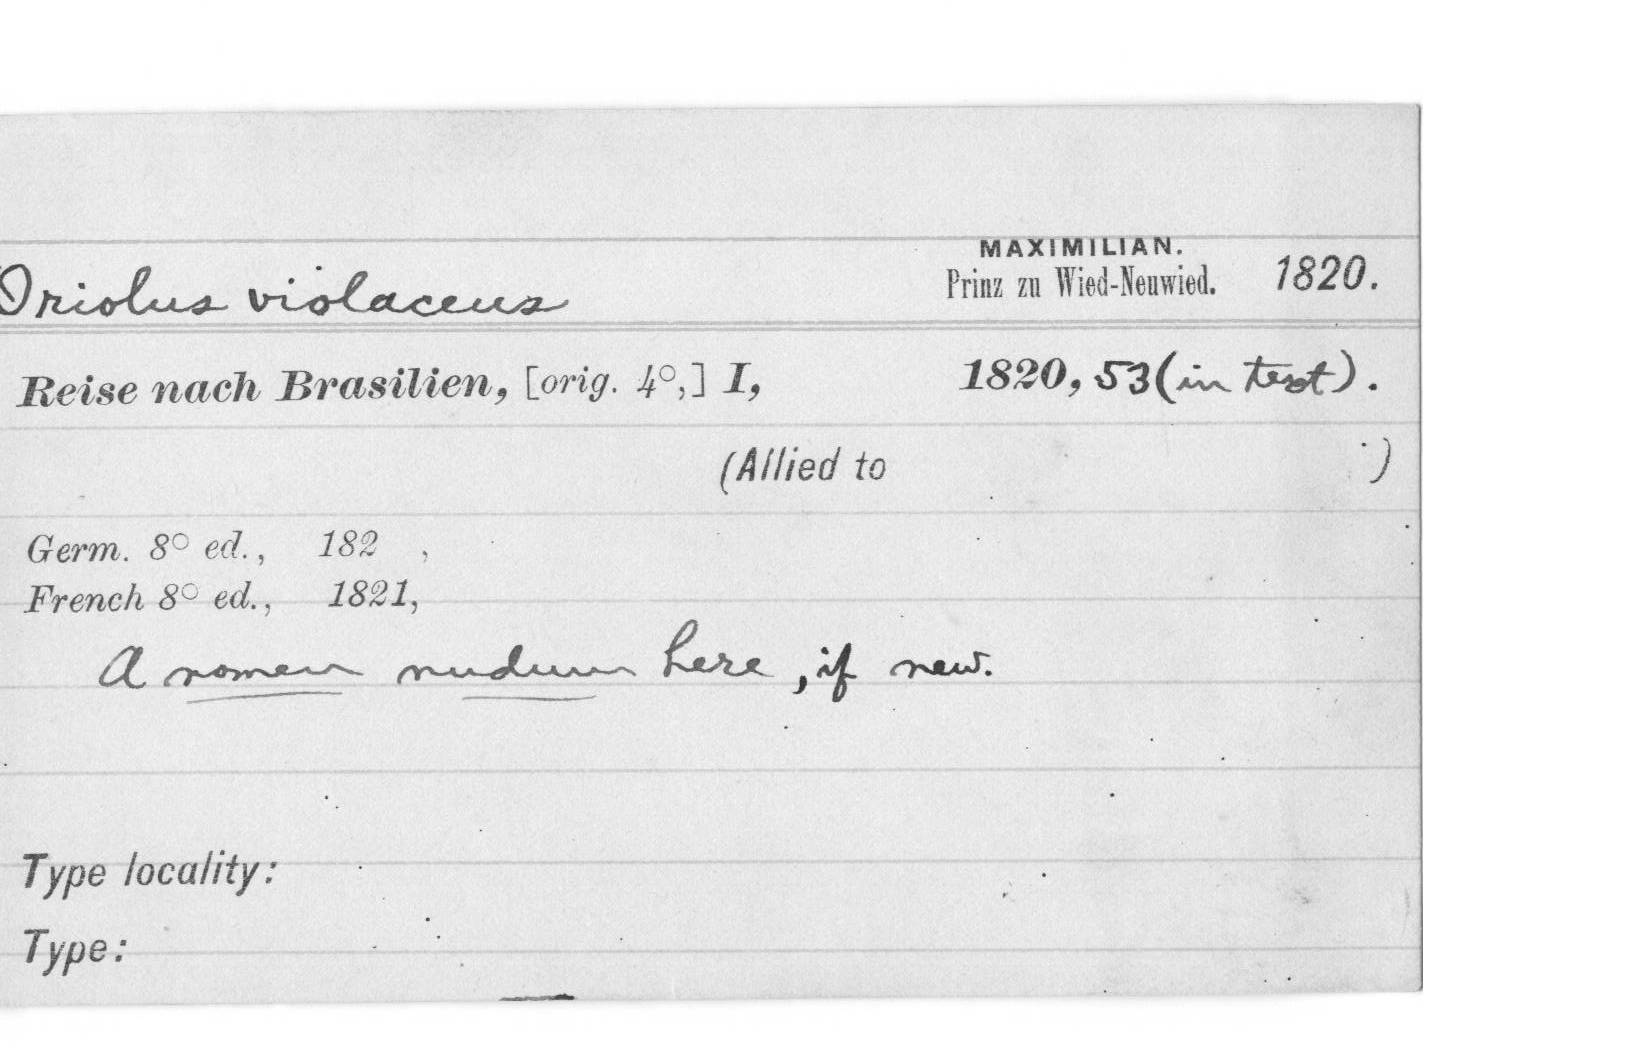 Oriolus violaceus
MAXIMILIAN.
Prinz zu Wied-Neuwied. 1820.
Reise nach Brasilien, [orig. 4°,] I, 1820, 53 (in text).
(Allied to .)
Germ. 8° ed., 182 ,
French 8° ed., 1821,
A nomen nudum here, if new.
Type locality:
Type: